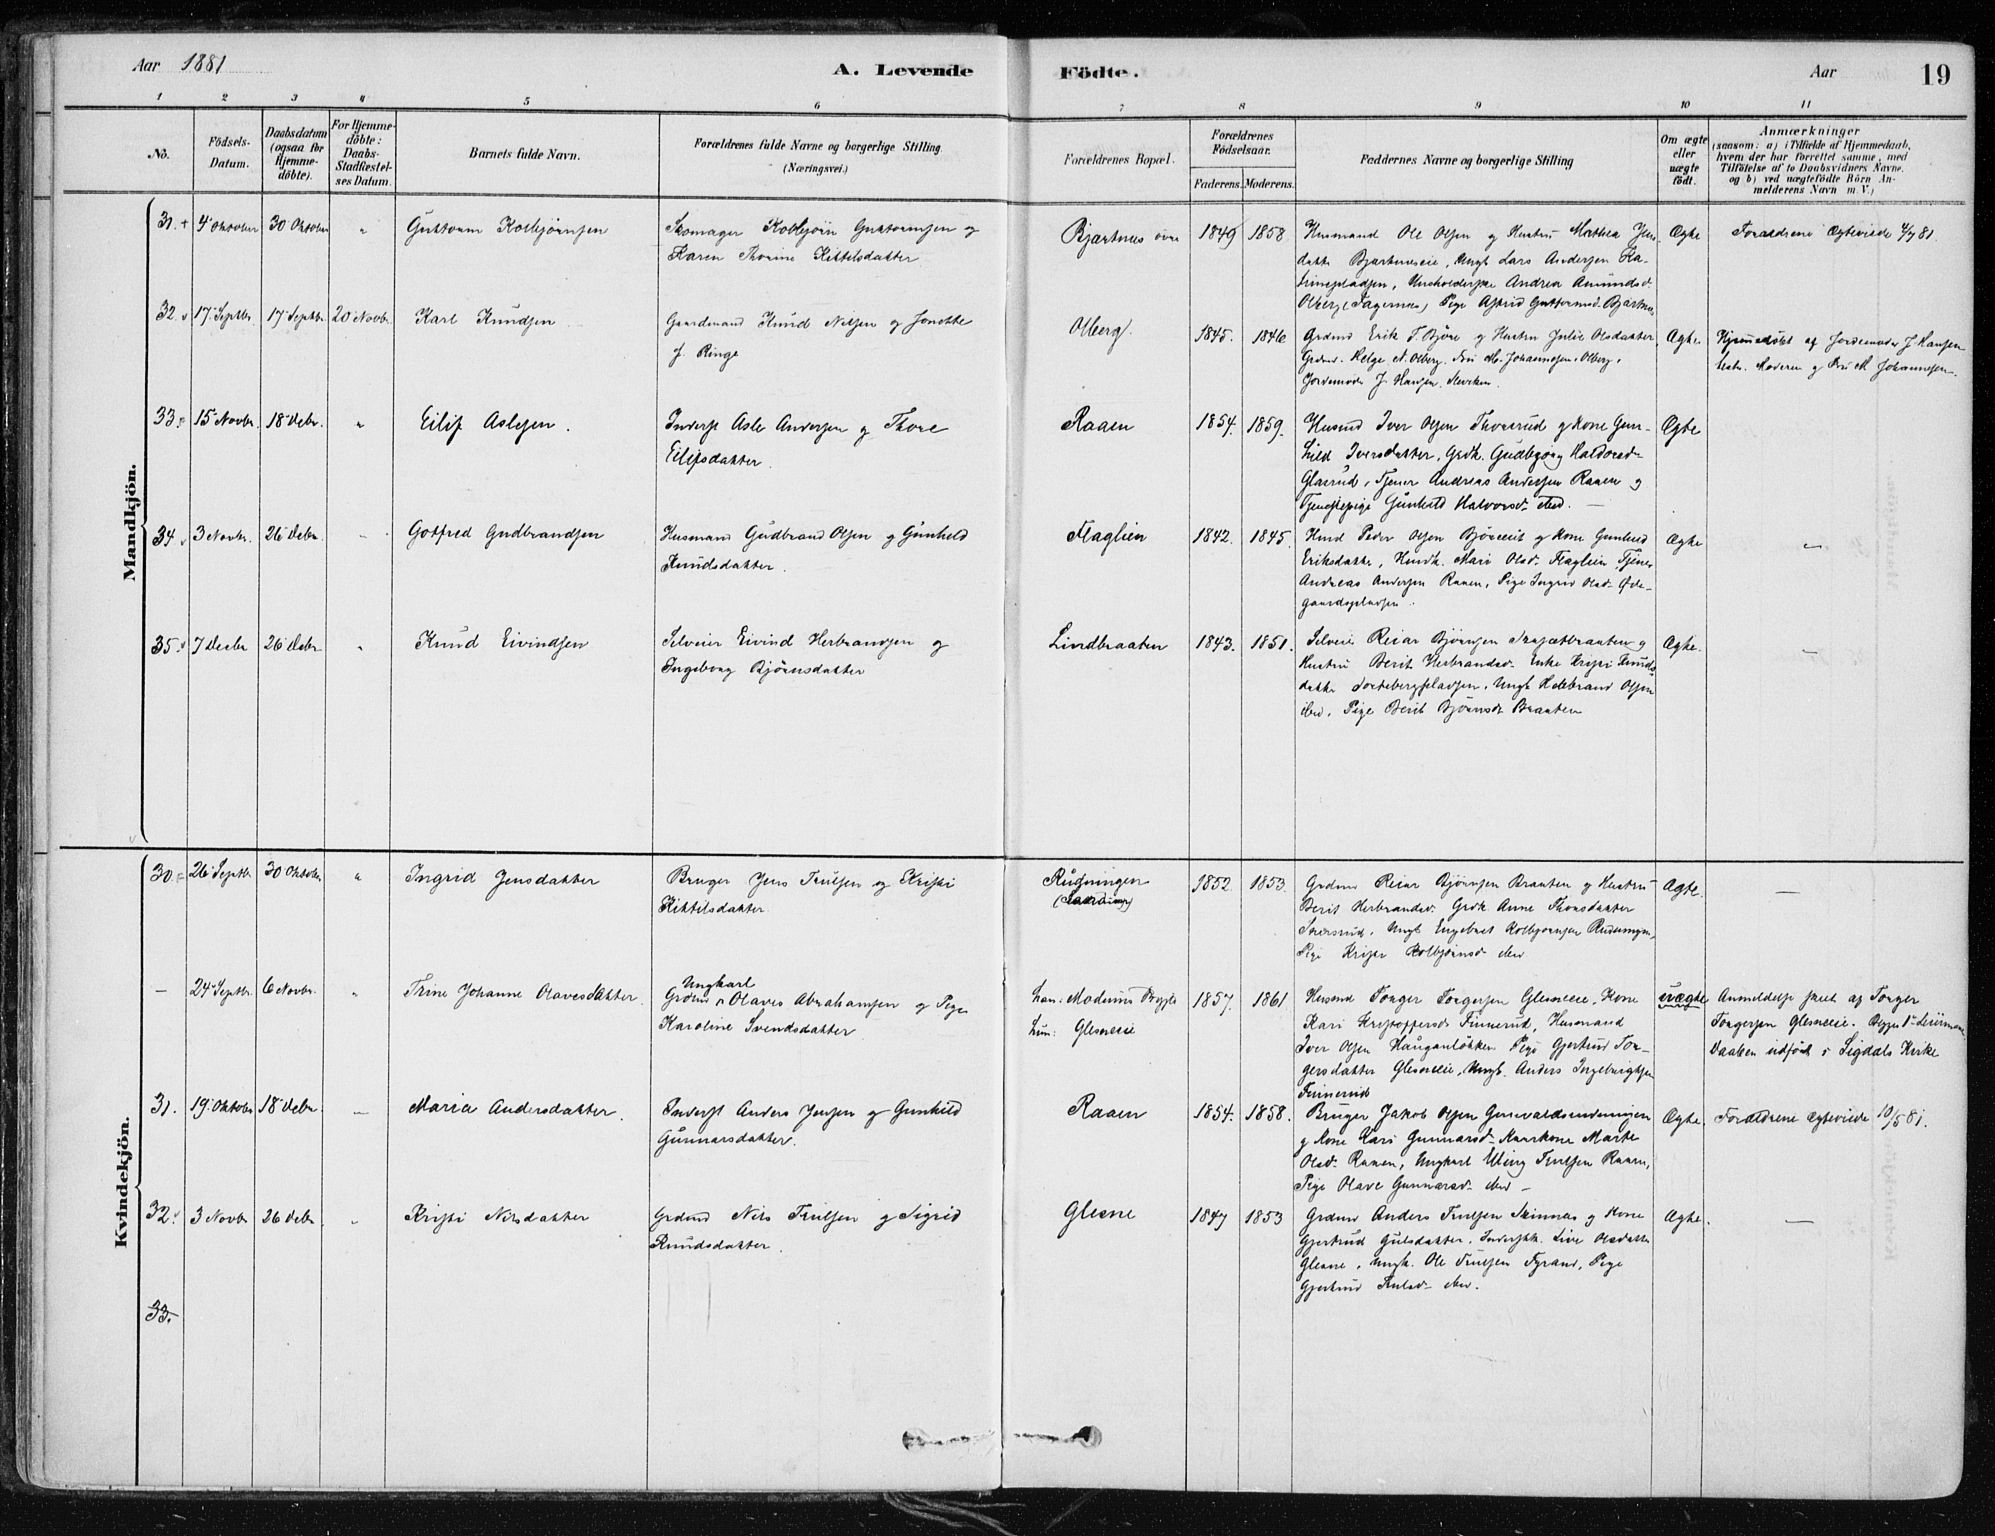 Aar 1881
A. Levende
Födte.
Aar
19
1 2 3 4 5 6 7 8 9 10 11
No.
Födsels-
Datum.
Daabsdatum
(ogsaa for
Hjemme-
döbte).
For Hjemme-
döbte:
Daabs-
Stadfæstel-
ses Datum.
Barnets fulde Navn.
Forældrenes fulde Navne og borgerlige Stilling
(Næringsvei.)
Forældrenes Bopæl.
Forældrenes
Födselsaar.
Faderens. Moderens.
Faddernes Navne og borgerlige Stilling
Om ægte
eller
uægte
födt.
Anmærkninger
(saasom: a) i Tilfælde af Hjemmedaab,
hvem der har forrettet samme, med
Tilföielse af to Daabsvidners Navne.
og b) ved uægtefödte Börn An-
melderens Navn m. V.)
Mandkjön.
31. 4 Oktober 30 Oktober " Guttorm Kolbjørnsen
Skomager Kolbjørn Guttormsen og
Karen Thorine Kittilsdatter
Bjertnes øvre 1849 1858.
Husmand Ole Olsen og Hustru Mathea Jens-
datter Bjertneseie, Ungk. Lars Andersen Ka-
trinepladsen, Andrea Amundsd.
Olberg (Fagernes) Pige Astrid Guttormsd. Bjertnes
Ægte Forældrene Ægteviede 4/7 81.
32. 17 Septbr. 17 Septbr. 20 Novbr. Karl Knudsen
Gaardmand Knud Nilsen og Jonette
f. Ringe
Olberg. 1845. 1846
Grdmd Erik T. Bjøre og Hustru Julie Olsdatter
Grdmd. Helge N. Olberg. Fru M. Johannesen, Olberg,
Jordemoder J. Hansen.
Ægte Hjemmedøbt af Jordemoder J. Hansen
Moderen og Fru M. Johannesen.
33. 15 Novbr. 18 Debr. " Eilif Aslesen.
Inderst Asle Andersen og Thore
Eilifsdatter.
Raaen 1854. 1859.
Husmd Iver Olsen Thorsrud og Kone Gun-
hild Iversdatter, Grdk. Gudbjør Haldorsd.
Glasrud, Tjener Andreas Andersen Raaen og
Tjenestepige Gunhild Halvorsd. ibid. —
Ægte
34 3 Novbr. 26 Debr. " Gotfred Gudbrandsen
Husmand Gudbrand Olsen og Gunhild
Knudsdatter.
Flaglien 1842. 1845.
Husmd Peder Olsen og Kone Gunhild
Eriksdatter, Husmk. Mari Olsd. Flaglien Tjener
Andreas Andersen Raaen, Pige Ingrid Olsd. Øde-
gaardspladsen.
Ægte "
35. 7 Decbr 26 Debr " Knud Eivindsen
Selveier Eivind Herbrandsen og
Ingeborg Bjørnsdatter
Lindbraaten 1843. 1851.
Selveier Reiar Bjørnsen og
Hustru Berit Herbrandsd. Enke Kristi Knuds-
datter, Ungk. Hellebrand Olsen
ibid, Pige Berit Bjørnsd. Braaten
Ægte. "
Kvindekjön.
30. 26 Septbr 30 Oktober " Ingrid Jensdatter
Bruger Jens Trulsen og Kristi
Kittilsdatter
Rudningen 1852. 1853.
Grdmd Reiar Bjørnsen Braaten og Hustru
Berit Herbrandsd. Grdk. Anne Thorsdatter
Ungk. Engebret Kolbjørnsen
Pige Kolbjørnsd. ibid
Ægte. —
— 24 Septbr. 6 Novbr. " Trine Johanne Olavesdatter
Ungkarl
Olaves Abrahamsen og Pige
Karoline Svendsdatter
han: Modums
hun: Glesneeie
1857. 1861
Husmd Torger Torgersen Glesneeie, Kone
Kari Kristoffersd. Finnerud, Husmand
Iver Olsen Hauganløkken Pige Gjertrud Tor-
gersdatter Glesneeie, Ungk. Anders Ingebrigtsen
Finnerud
uægte Anmeldelse skeet af Torger
Torgersen Glesneeie.
Daaben udført i Sigdals Kirke
31. 19 Oktober 18 Debr. — Maria Andersdatter.
Inderst Anders Jensen og Gunhild
Gunnarsdatter.
Raaen 1854. 1858.
Bruger Jakob Olsen
og Kone Kari Gunnarsd. Marte
Olsd. Raaen, Ungkarl Trulsen Raaen,
Pige Olave Gunnarsd. ibid —
Ægte. Forældrene ægteviede 10/5 81.
32. 3 Novbr 26 Debr. " Kristi Nilsdatter
Grdmd Nils Trulsen og Sigrid
Knudsdatter.
Glesne 1847 1853
Grdmd Anders Trulsen Skinnes og Kone
Gjertrud Gulsdatter, Live Olsdatter
Glesne, Ungk. Ole Trulsen Pige
Gjertrud Trulsd. ibid.
Ægte. —
33.